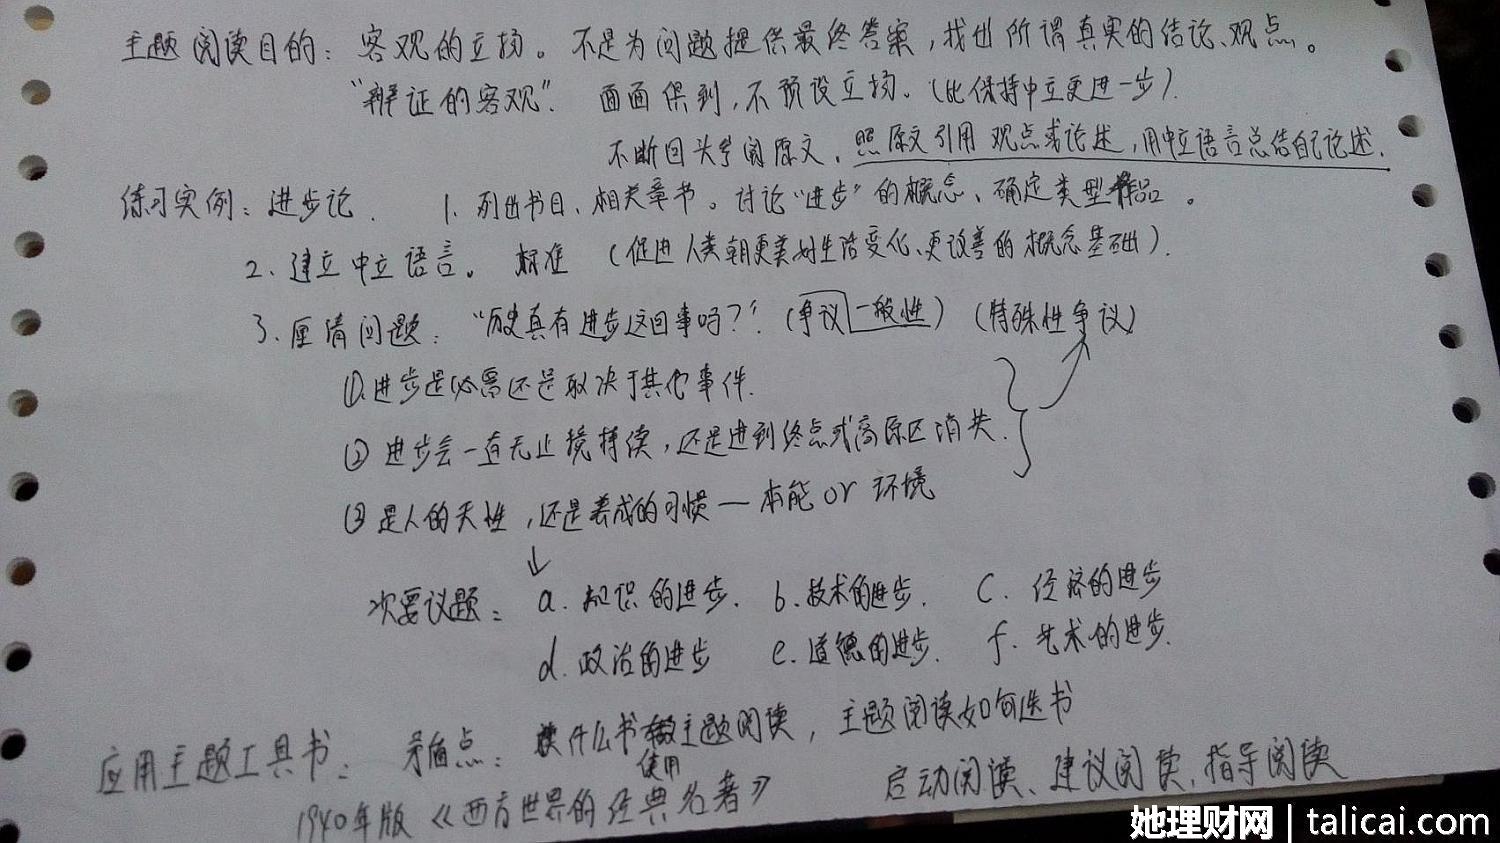 主题阅读目的：客观的立场。不是为问题提供最终答案，找出所谓真实的结论、观点。
“辩证的客观”. 面面俱到，不预设立场。（比保持中立更进一步）.
不断回头参阅原文、照原文引用观点或论述，用中立语言总结自己论述.
练习实例：进步论. 1. 列出书目、相关章节。讨论“进步”的概念、确定类型作品。
2. 建立中立语言。标准（促进人类朝更美好生活变化、更改善的概念基础）.
3. 厘清问题：“历史真有进步这回事吗？”.（争议一般性）（特殊性争议）
①.进步是必需还是取决于其他事件.
② 进步会一直无止境持续，还是进到终点或高原区消失.
③ 是人的天性，还是养成的习惯—本能 or 环境
次要议题： a. 知识的进步. b. 技术的进步. c. 经济的进步
d. 政治的进步 e. 道德的进步. f. 艺术的进步.
应用主题工具书： 矛盾点：读什么书做主题阅读，主题阅读如何选书
使用
1940年版《西方世界的经典名著》 启动阅读、建议阅读、指导阅读
她理财网 | talicai.com